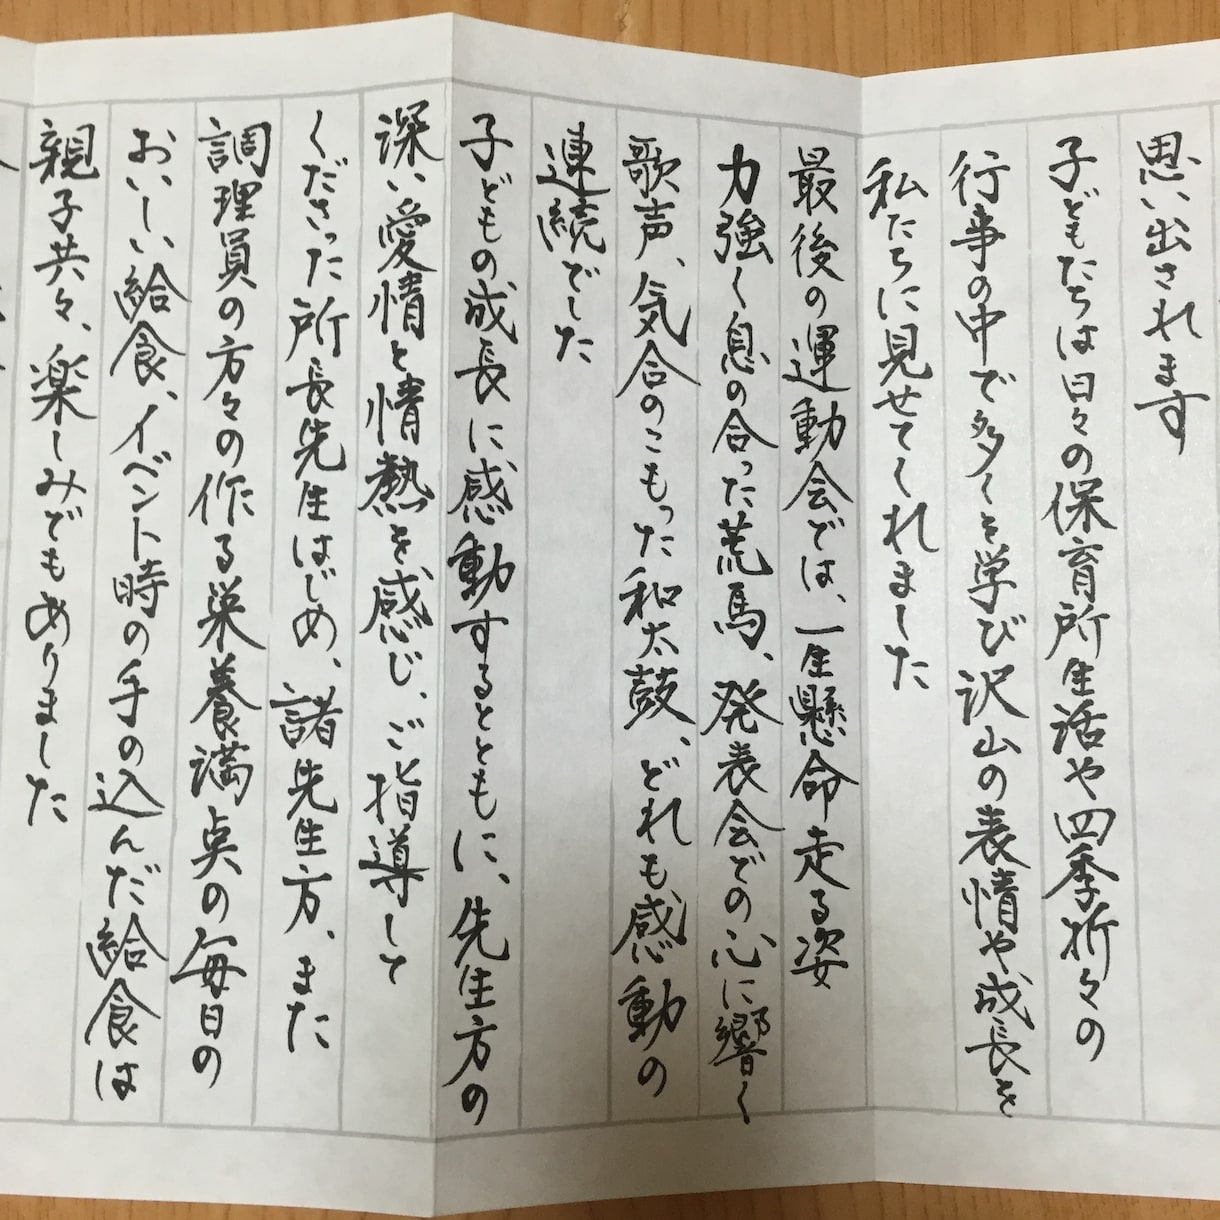 思い出されます
子どもたちは日々の保育所生活や四季折々の
行事の中で多くを学び沢山の表情や成長を
私たちに見せてくれました
最後の運動会では、一生懸命走る姿
力強く息の合った荒馬、発表会での心に響く
歌声、気合のこもった和太鼓、どれも感動の
連続でした
子どもの成長に感動するとともに、先生方の
深い愛情と情熱を感じ、ご指導して
くださった所長先生はじめ、諸先生方、また
調理員の方々の作る栄養満点の毎日の
おいしい給食、イベント時の手の込んだ給食は
親子共々、楽しみでもありました